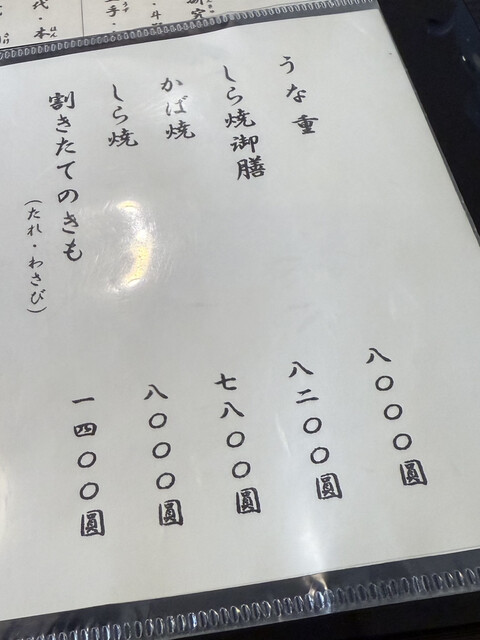 うな重 八〇〇〇圓
しら焼御膳 八二〇〇圓
かば焼 七八〇〇圓
しら焼 八〇〇〇圓
割きたてのきも 一四〇〇圓
(たれ・わさび)